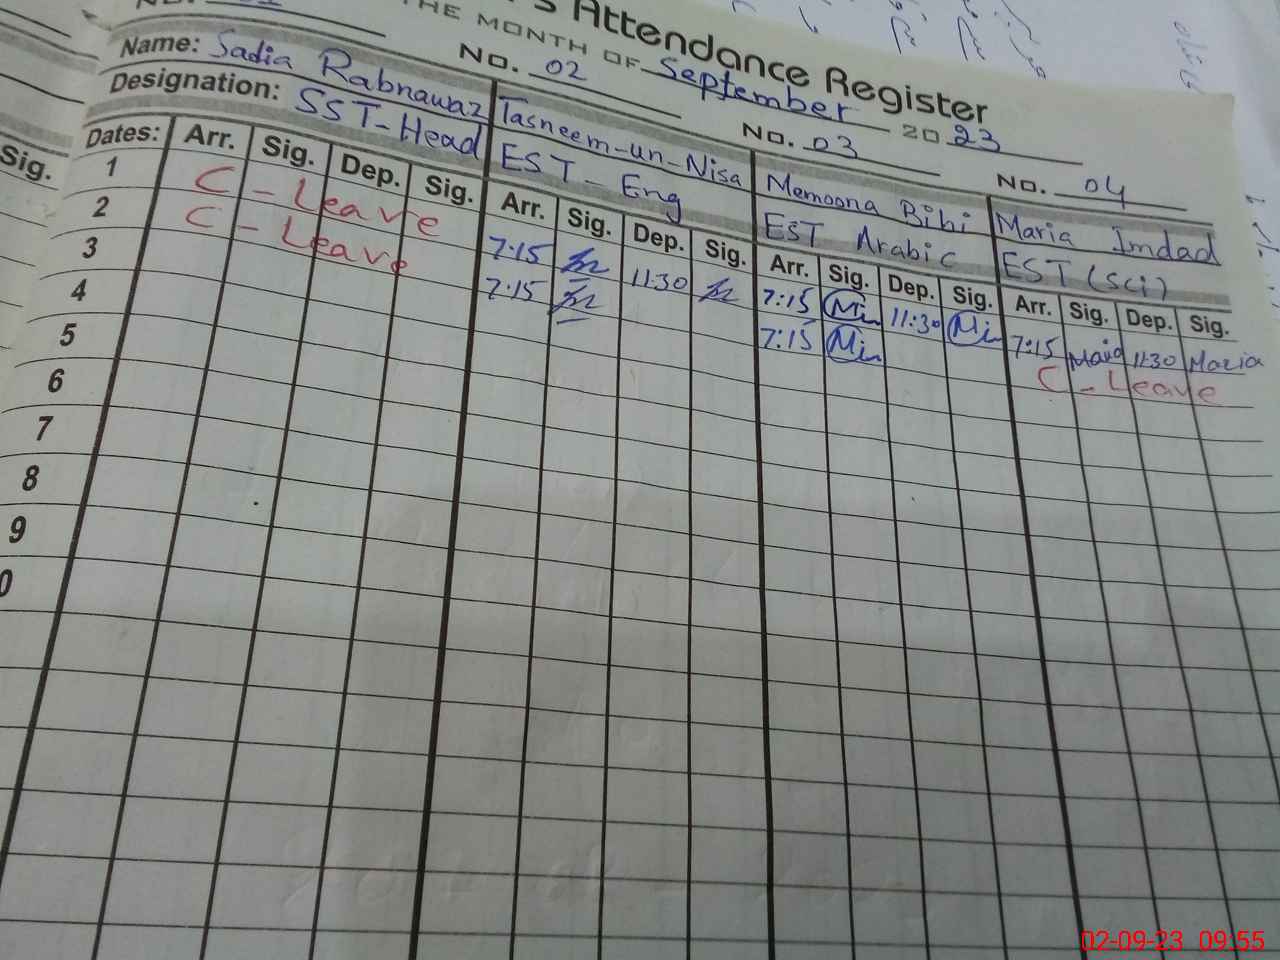 Attendance Register
THE MONTH OF September 2023
NO. 02 NO. 03 NO. 04
Name: Sadia Rabnawaz Tasneem-un-Nisa Memoona Bibi Maria Imdad
Designation: SST-Head EST-Eng EST Arabic EST (sci)
Dates: Arr. Sig. Dep. Sig. Arr. Sig. Dep. Sig. Arr. Sig. Dep. Sig. Arr. Sig. Dep. Sig.
1 C-Leave 7:15 11:30 7:15 11:30 7:15 Maria 11:30 Maria
2 C-Leave 7:15 7:15 C-Leave
3
4
5
6
7
8
9
0
Sig.
02-09-23 09:55